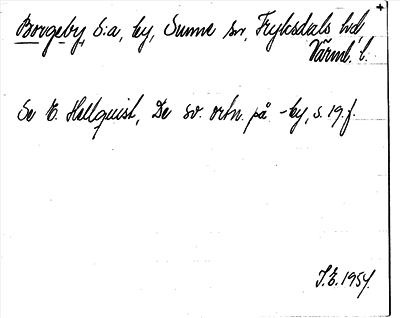 Borgeby, S:a, by, Sunne sn, Fryksdals hd,
Värml. l.
Se E. Hellquist, De sv. ortn. på -by, s. 19 f.
I.E. 1954.